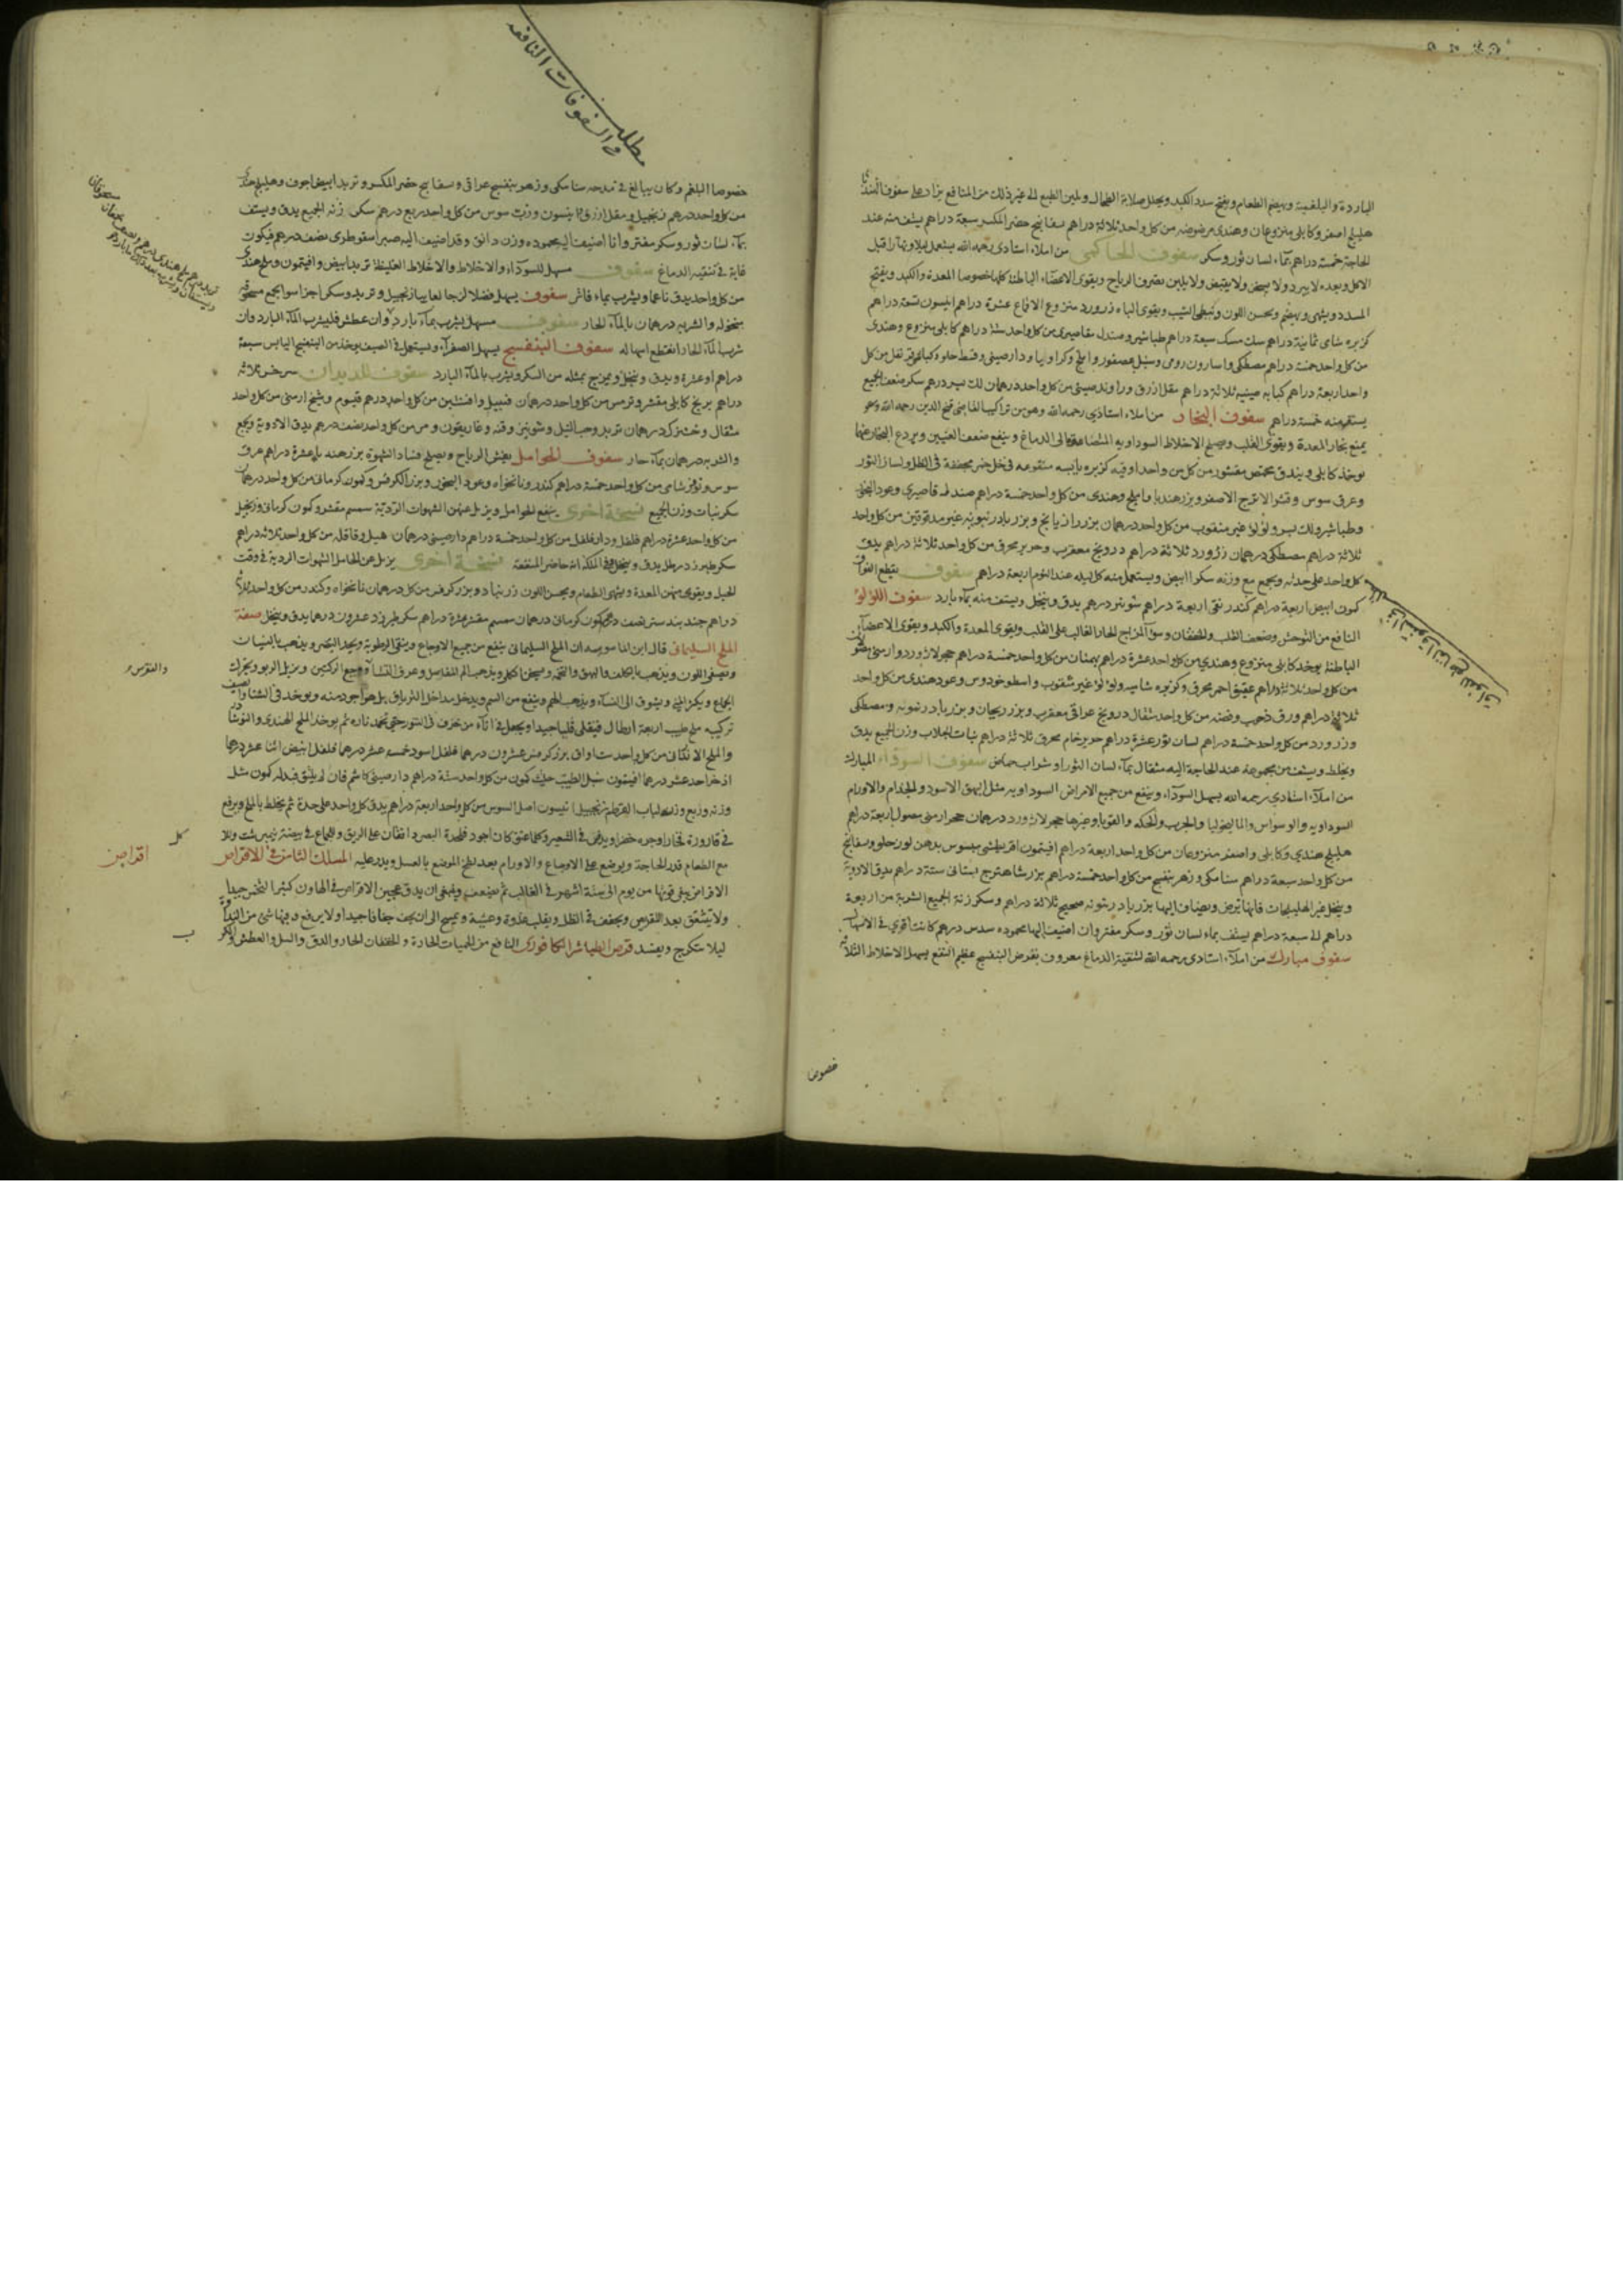 الباردة والبلغمية ويهضم الطعام ويفتح سدد الكبد ويحلل صلابة الطحال ويلين الطبع الى غير ذلك من المنافع يزاد على سفوف
هليلج اصفر وكابلى منزوعان وهندى مرضوضه من كل واحد ثلاثة دراهم بسفايج خضر المكسر سبعة دراهم يستف منه عند
الحاجة خمسة دراهم بماء لسان ثور وسكر سفوف من املاء استادى رحمه الله يستعمل ليلا ونهارا قبل
الاكل وبعده لا يبرد ولا يسخن ولا يقبض ولا يلين يصرف الرياح ويقوى الاعضاء الباطنة كلها خصوصا المعدة والكبد ويفتح
السدد ويشهى ويهضم ويحسن اللون ويبطى الشيب ويقوى الباه زرورد منزوع الاقماع عشرة دراهم انيسون تسعة دراهم
كزبره شامى ثمانية دراهم سك مسك سبعة دراهم طباشير وصندل مقاصيرى من كل واحد ستة دراهم كابلى منزوع وهندى
من كل واحد خمسة دراهم مصطكى واسارون رومى وسنبل عصفور واملج وكراويا ودارصينى وقسط حلو وكبابه قرنفل من كل
واحد اربعة دراهم ثلاثة دراهم مقل ازرق وراوند صينى من كل واحد درهمان لك درهم سكر ضعف الجميع
يستف منه خمسة دراهم سفوف البخار من املاء استاذي رحمه الله وهو من تراكيب القاضى فتح الدين رحمه الله وهو
يمنع بخار المعدة ويقوى القلب ويصلح الاخلاط السوداويه المتصاعدة الى الدماغ وينفع ضعف العينين ويردع البخار عنها
يوخذ كابلى وبندق محمص مقشور من كل من واحد اوقيه كزبره يابسه منقوعه فى خل خمر مجففة فى الظل ولسان الثور
وعرق سوس وقشر الاترج الاصفر وبزر هندبا واملج وهندى من كل واحد خمسة دراهم صندل مقاصيري وعود
وطباشير ولك بسر ولؤلؤ غير مثقوب من كل واحد درهمان بزر رازيانج وبزر بادرنبويه غير مدقوقين من كل واحد
ثلاثة دراهم مصطكى درهمان زرورد ثلاثة دراهم درونج معقرب وحرير محرق من كل واحد ثلاثة دراهم يدق
كل واحد على حدته ويجمع مع وزنه سكرا ابيض ويستعمل منه كل ليله عند النوم اربعة دراهم سفوف يقطع
كمون ابيض اربعة دراهم كندر نقى اربعة دراهم شونيز درهم يدق وينخل ويستف منه بماء بارد سفوف اللؤلؤ
النافع من التوحش وضعف القلب والخفقان وسوء المزاج الحار الغالب على القلب ويقوى المعدة والكبد ويقوى الاعضاء
الباطنة يوخذ كابلى منزوع وهندي من كل واحد عشرة دراهم بهمنان من كل واحد خمسة دراهم حجر لازورد وارمنى
من كل واحد ثلاثة دراهم عقيق احمر محرق وكزبره شاميه ولؤلؤ غير مثقوب واسطوخودوس وعود هندى من كل واحد
ثلاثة دراهم ورق ذهب وفضه من كل واحد مثقال درونج عراقى معقرب وبزر ريحان وبزر بادرنبويه ومصطكى
وزرورد من كل واحد خمسة دراهم لسان ثور عشرة دراهم حرير خام محرق ثلاثة دراهم نبات الجلاب وزن الجميع يدق
ويخلط ويستف من مجموعه عند الحاجة اليه مثقال بماء لسان الثور او شراب حماض سفوف السوداء المبارك
من املاء استادي رحمه الله يسهل السوداء وينفع من جميع الامراض السوداويه مثل البهق الاسود والجذام والاورام
السوداويه والوسواس والماليخوليا والجرب والحكه والقوبا وغيرها حجر لازورد درهمان حجر ارمنى مغسول اربعة دراهم
هليلج هندي وكابلى واصفر منزوعان من كل واحد اربعة دراهم افيتمون اقريطشى مبسوس بدهن لوز حلو وبسفايج
من كل واحد سبعة دراهم سنا مكى وزهر بنفسج من كل واحد خمسة دراهم بزر شاهترج بستانى ستة دراهم يدق الادوية
وينخل غير الهليلجات فانها ترض ويضاف اليها بزر بادرنبويه صحيح ثلاثة دراهم وسكر زنة الجميع الشربة من اربعة
دراهم الى سبعة دراهم يستف بماء لسان ثور وسكر مفتر وان اضيف اليها محموده سدس درهم كانت اقوي فى الاسهال
سفوف مبارك من املاء استادى رحمه الله لتنقية الدماغ معروف بقرص البنفسج عظيم النفع يسهل الاخلاط الثلاثة
خصوصا
مطلب
فى السفوفات النافعه
خصوصا البلغم وكان يبالغ فى مدحه سنا مكى وزهر بنفسج عراقى وبسفايج خضر المكسر وتربد ابيض اجوف وهليلج
من كل واحد درهم زنجبيل ومقل ازرق وانيسون ورب سوس من كل واحد ربع درهم سكر زنة الجميع يدق ويستف
بماء لسان ثور وسكر مفتر وانا اضيف اليه محموده وزن دانق وقد اضيف اليه صبر اسقوطرى نصف درهم فيكون
غاية فى تنقية الدماغ سفوف مسهل للسوداء والاخلاط والاخلاط الغليظة تربد ابيض وافيتمون وملح هندى
من كل واحد يدق ناعما ويشرب بماء فاتر سفوف يسهل فضلا لزجا لعابيا زنجبيل وتربد وسكر اجزا سوا يجمع مسحوقه
منخوله والشربه درهمان بالماء الحار سفوف مسهل يشرب بماء بارد وان عطش فليشرب الماء البارد وان
شرب الماء الحار انقطع اسهاله سفوف البنفسج يسهل الصفراء ويستعمل فى الصيف يوخذ من البنفسج اليابس سبعة
دراهم او عشرة ويدق وينخل ويمزج بمثله من السكر ويشرب بالماء البارد سفوف للديدان سرخس ثلاثة
دراهم برنج كابلى مقشر وترمس من كل واحد درهمان قنبيل وافسنتين من كل واحد درهم قيسوم وشيح ارمنى من كل واحد
مثقال درهمان تربد وحب النيل وشونيز وقنه وغاريقون ومر من كل واحد نصف درهم يدق الادوية ويجمع
والشربه درهمان بماء حار سفوف الحوامل يفش الرياح ويصلح فساد الشهوة بزر هندبا عشرة دراهم عرق
سوس وشامى من كل واحد خمسة دراهم كندر ونانخواه وعود البخور وبزر الكرفس وكمون كرمانى من كل واحد درهمان
سكر نبات وزن الجميع نسخة اخرى ينفع الحوامل ويزيل عنهن الشهوات الرديّة سمسم مقشر وكمون كرمانى وزنجبيل
من كل واحد عشرة دراهم فلفل ودارفلفل من كل واحد خمسة دراهم دارصينى درهمان هيل وقاقله من كل واحد ثلاثة دراهم
سكر طبرزد رطل يدق وينخل حاضر المنفعة نسخة اخرى يزيل عن الحامل الشهوات الردية فى وقت
الحبل ويقوى منهن المعدة ويشهى الطعام ويحسن اللون زرنباد وبزر كرفس من كل درهمان نانخواه وكندر من كل واحد ثلاثة
دراهم جندبيدستر نصف درهم كمون كرمانى درهمان سمسم مقشر عشرة دراهم سكر طبرزد عشرون درهما يدق وينخل صفة
الملح السليمانى قال ابن الماسويه ان الملح السليمانى ينفع من جميع الاوجاع وينقى الرطوبة ويحد البصر ويذهب بالنسيان
ويصفى اللون ويذهب بالكلف والبهق والتخمة ويسخن الكلى ويذهب الم المفاصل وعرق النسا ووجع الركبتين ويزيل الربو ويحرك
الجماع ويكثر المنى ويشوق الى النساء ويذهب الهم وينفع من السم ويدخل مداخل الترياق بل هو اجود منه ويوخذ فى الشتا والصيف
تركيبه ملح طيب اربعة ارطال فيقلى قليا جيدا ويجعل فى اناء من خزف فى التنور حتى تخمد ناره ثم يوخذ الملح الهندى والنوشا
والملح من كل واحد ست اواق بزر كرفس عشرون درهما فلفل اسود خمسة عشر درهما فلفل ابيض اثنا عشر درهما
اذخر احد عشر درهما افيتمون سنبل الطيب كمون من كل واحد ستة دراهم دارصينى كاشم فان لم يلق فبدله كمون مثل
وزنه وربع وزنه لباب القرطم زنجبيل انيسون اصل السوس من كل واحد اربعة دراهم يدق كل واحد على حدة ثم يخلط بالملح ويرفع
فى قارورة فخار او جره خضرا ويدفن فى الشعير وكلما عتق كان اجود قطرة البصر دانقان على الريق وللجماع فى بيضة نيمبرشت وكلا
مع الطعام قدر الحاجة ويوضع على الاوجاع والاورام بعد لطخ الموضع بالعسل ويذر عليه المسلك الثامن فى الاقراص
الاقراص يبقى قوتها من يوم الى ستة اشهر فى الغالب ثم تضعف وينبغى ان يدق عجين الاقراص فى الهاون كثيرا لتخمر جيدا
ولا تتشقق بعد التقريص ويجفف فى الظل ويقلب غدوة وعشية ويمسح الى ان يجف جفافا جيدا ولا يرفع وفيها شئ من النداوة
ليلا تتكرج ويفسد قرص الطباشير الكافورى النافع من الحميات الحارة والخفقان الحار والدق والسل والعطش والكرب
والنقرس
اقراص